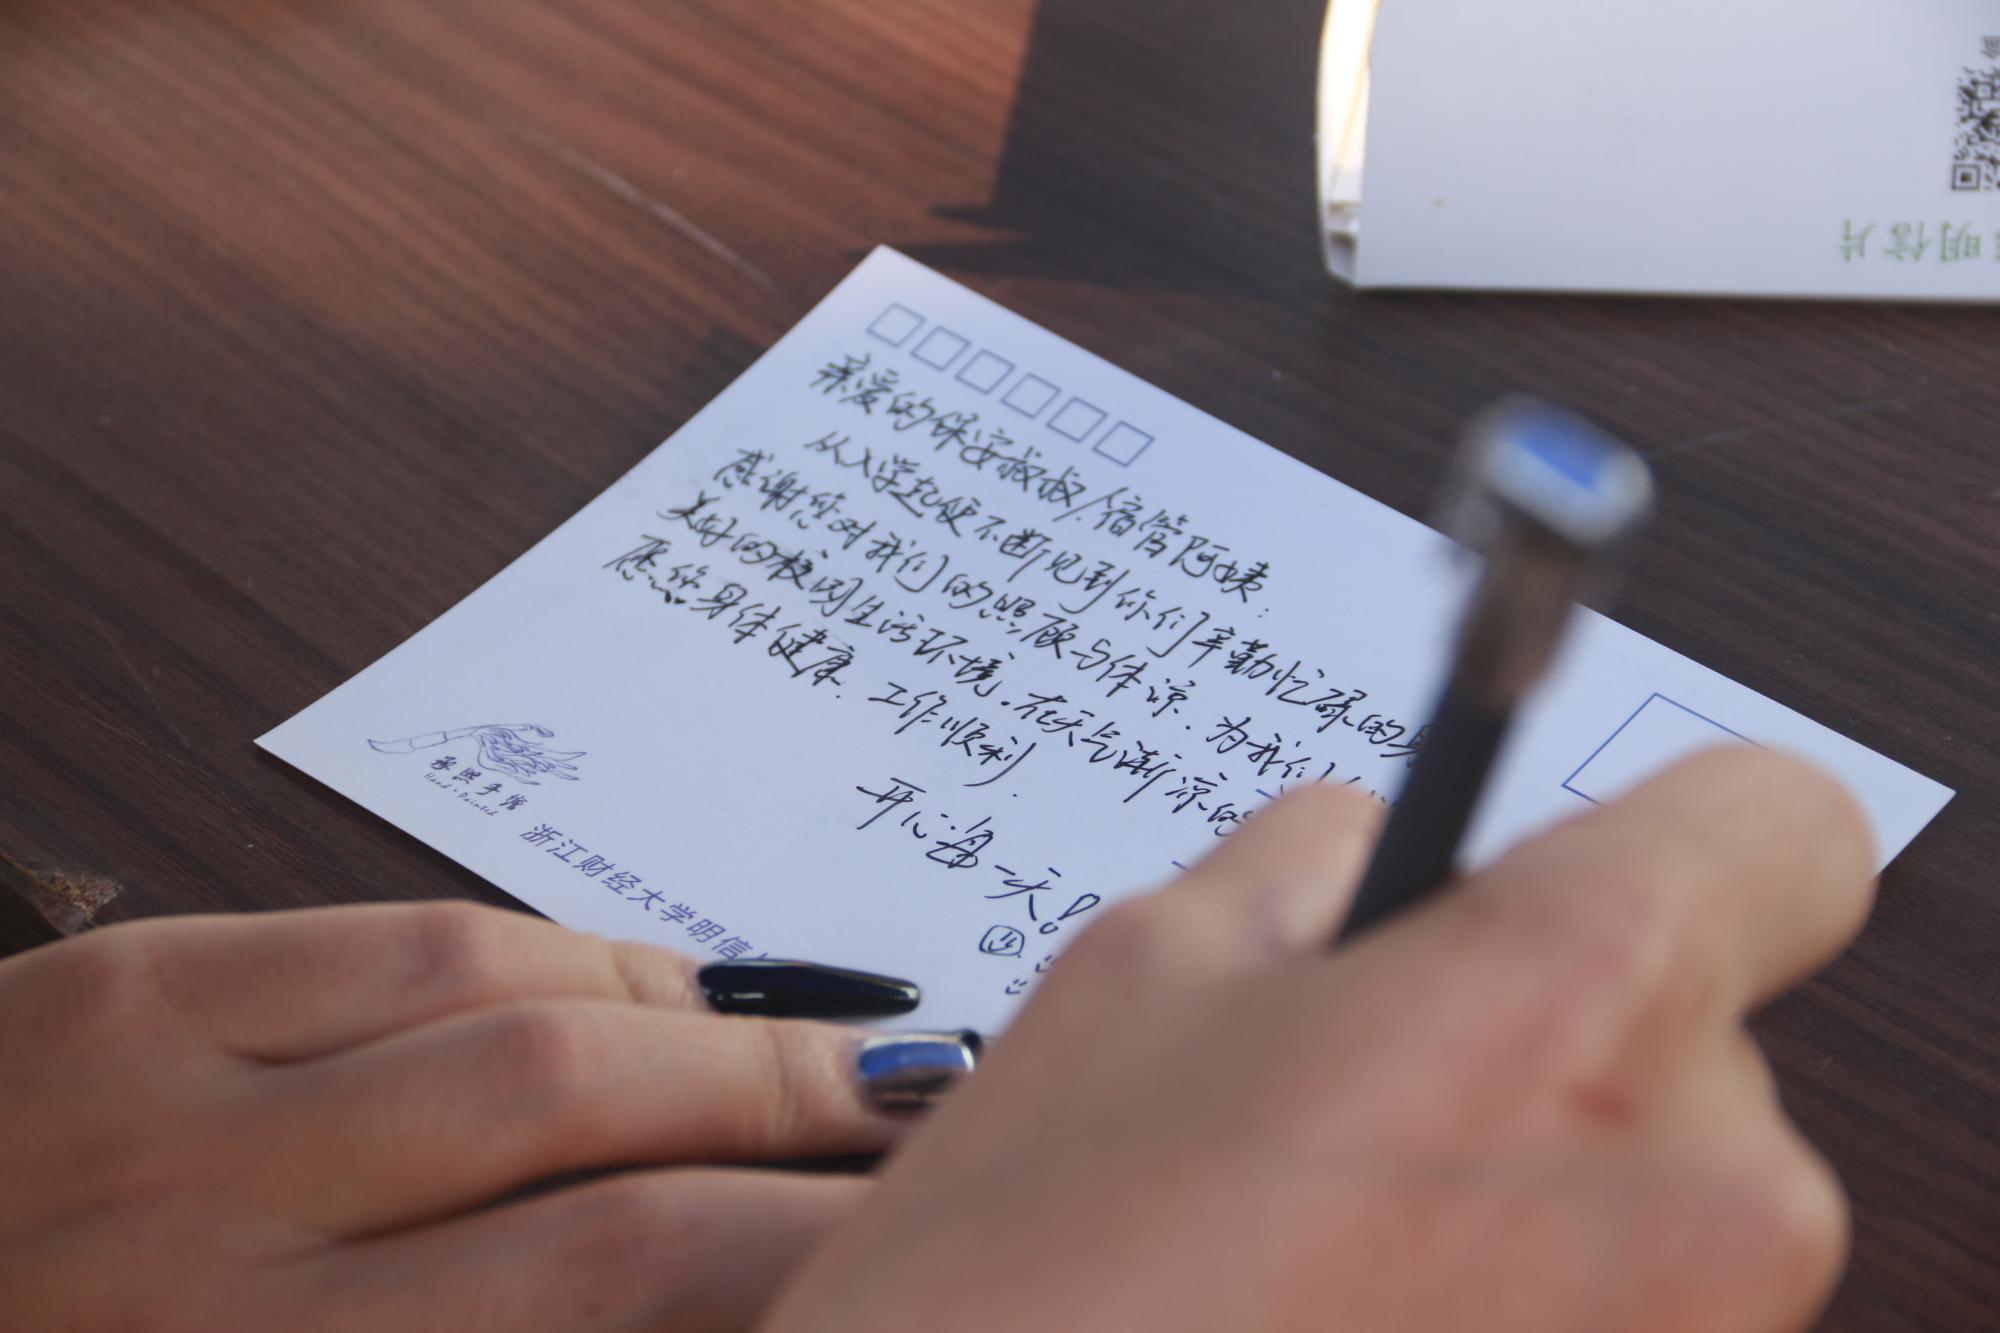 亲爱的保安叔叔/宿管阿姨:
从入学起便不断见到你们辛勤忙碌的身
感谢您对我们的照顾与体谅.为我们
美好的校园生活环境.在天气渐凉的
愿您身体健康.工作顺利.
开心每一天!
承熙手绘
Hand·Painted
浙江财经大学明信
明信片